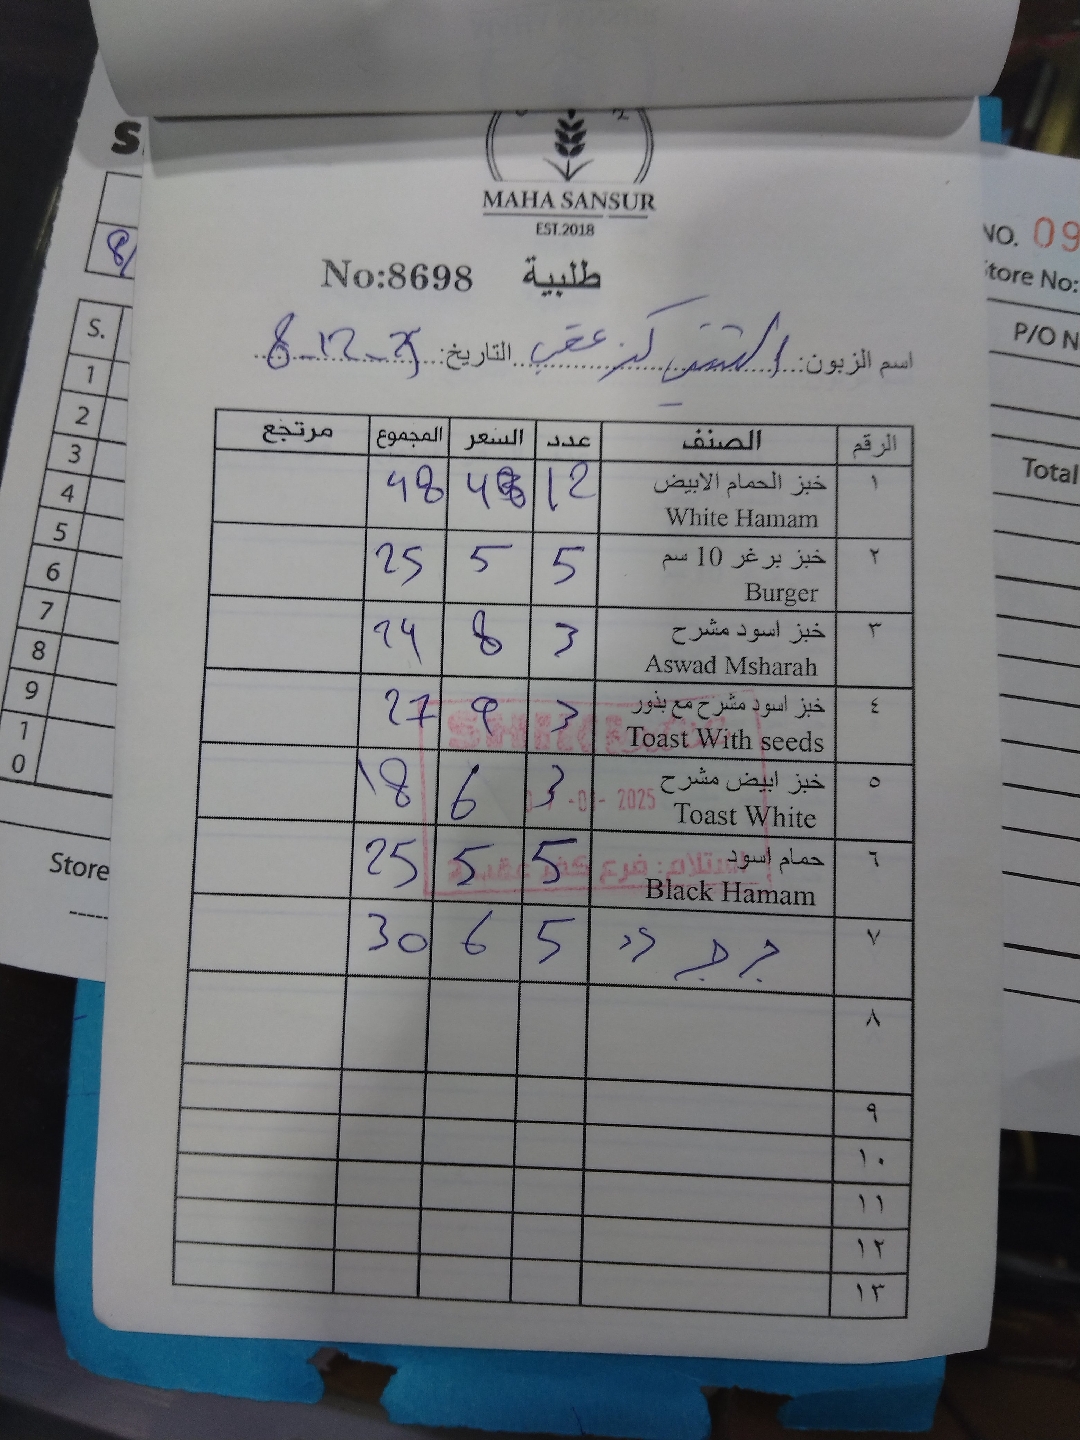 MAHA SANSUR
EST.2018
No:8698 طلبية
اسم الزبون: كفر عقب التاريخ: 8-12-25
الرقم الصنف عدد السعر المجموع مرتجع
١ خبز الحمام الابيض White Hamam 12 4 48
٢ خبز برغر 10 سم Burger 5 5 25
٣ خبز اسود مشرح Aswad Msharah 3 8 24
٤ خبز اسود مشرح مع بذور Toast With seeds 3 9 27
٥ خبز ابيض مشرح Toast White 3 6 18
٦ حمام اسود Black Hamam 5 5 25
٧ 5 6 30
٨
٩
١٠
١١
١٢
١٣
2025
استلام: فرع كفر عقب
S
8/
S.
1
2
3
4
5
6
7
8
9
1
0
Store
NO. 09
Store No:
P/O N
Total